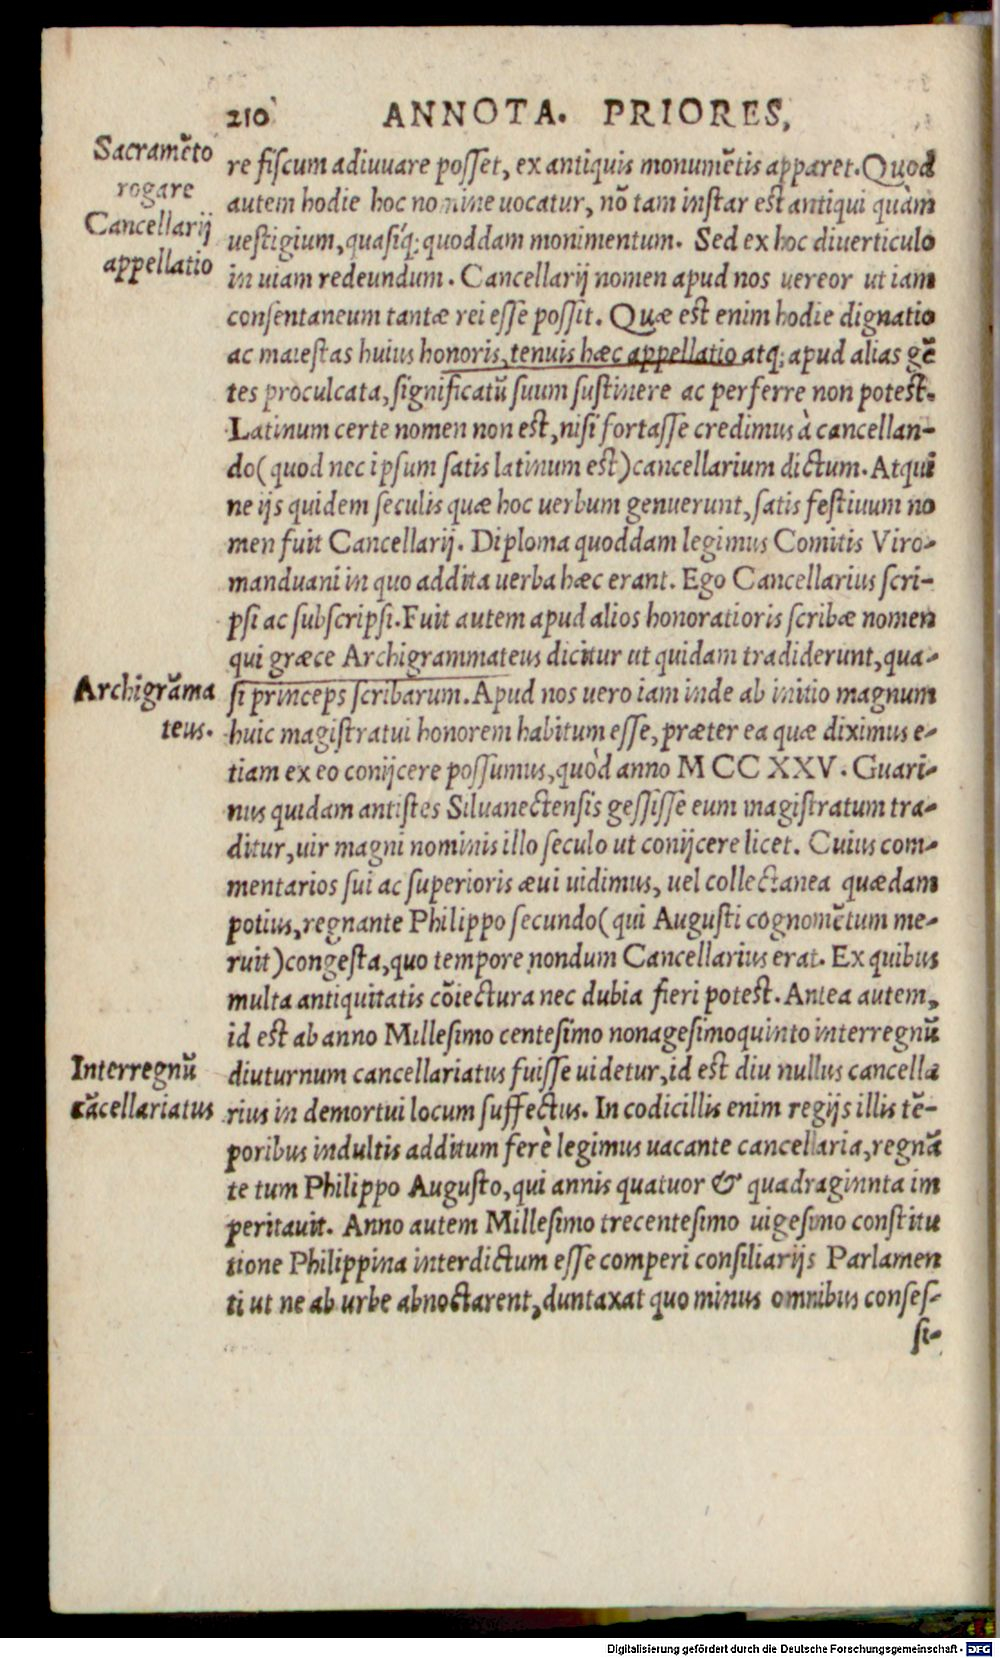 210 ANNOTA. PRIORES,
Sacramēto
rogare
Cancellarij
appellatio
re fiſcum adiuuare poſſet, ex antiquis monumētis apparet. Quod
autem hodie hoc nomine uocatur, nō tam inſtar eſt antiqui quàm
ueſtigium, quaſiq́; quoddam monimentum. Sed ex hoc diuerticulo
in uiam redeundum. Cancellarij nomen apud nos uereor ut iam
conſentaneum tantæ rei eſſe poſſit. Quæ eſt enim hodie dignatio
ac maieſtas huius honoris, tenuis hæc appellatio atq; apud alias gē
tes proculcata, ſignificatū ſuum ſuſtinere ac perferre non poteſt.
Latinum certe nomen non eſt, niſi fortaſſe credimus à cancellan-
do (quod nec ipſum ſatis latinum eſt) cancellarium dictum. Atqui
ne ijs quidem ſeculis quæ hoc uerbum genuerunt, ſatis feſtiuum no
men fuit Cancellarij. Diploma quoddam legimus Comitis Viro-
manduani in quo addita uerba hæc erant. Ego Cancellarius ſcri-
pſi ac ſubſcripſi. Fuit autem apud alios honoratioris ſcribæ nomen
qui græce Archigrammateus dicitur ut quidam tradiderunt, qua-
Archigrāma
teus.
ſi princeps ſcribarum. Apud nos uero iam inde ab initio magnum
huic magiſtratui honorem habitum eſſe, præter ea quæ diximus e-
tiam ex eo conijcere poſſumus, quòd anno M CC XXV. Guari-
nus quidam antiſtes Siluanectenſis geſſiſſe eum magiſtratum tra-
ditur, uir magni nominis illo ſeculo ut conijcere licet. Cuius com-
mentarios ſui ac ſuperioris æui uidimus, uel collectanea quædam
potius, regnante Philippo ſecundo (qui Auguſti cognomētum me-
ruit) congeſta, quo tempore nondum Cancellarius erat. Ex quibus
multa antiquitatis cōiectura nec dubia fieri poteſt. Antea autem,
id eſt ab anno Milleſimo centeſimo nonageſimoquinto interregnū
Interregnū
cācellariatus
diuturnum cancellariatus fuiſſe uidetur, id eſt diu nullus cancella
rius in demortui locum ſuffectus. In codicillis enim regijs illis tē-
poribus indultis additum ferè legimus uacante cancellaria, regnā
te tum Philippo Auguſto, qui annis quatuor & quadraginnta im
peritauit. Anno autem Milleſimo trecenteſimo uigeſimo conſtitu
tione Philippina interdictum eſſe comperi conſiliarijs Parlamen
ti ut ne ab urbe abnoctarent, duntaxat quo minus omnibus conſeſ-
ſi-
Digitalisierung gefördert durch die Deutsche Forschungsgemeinschaft - DFG